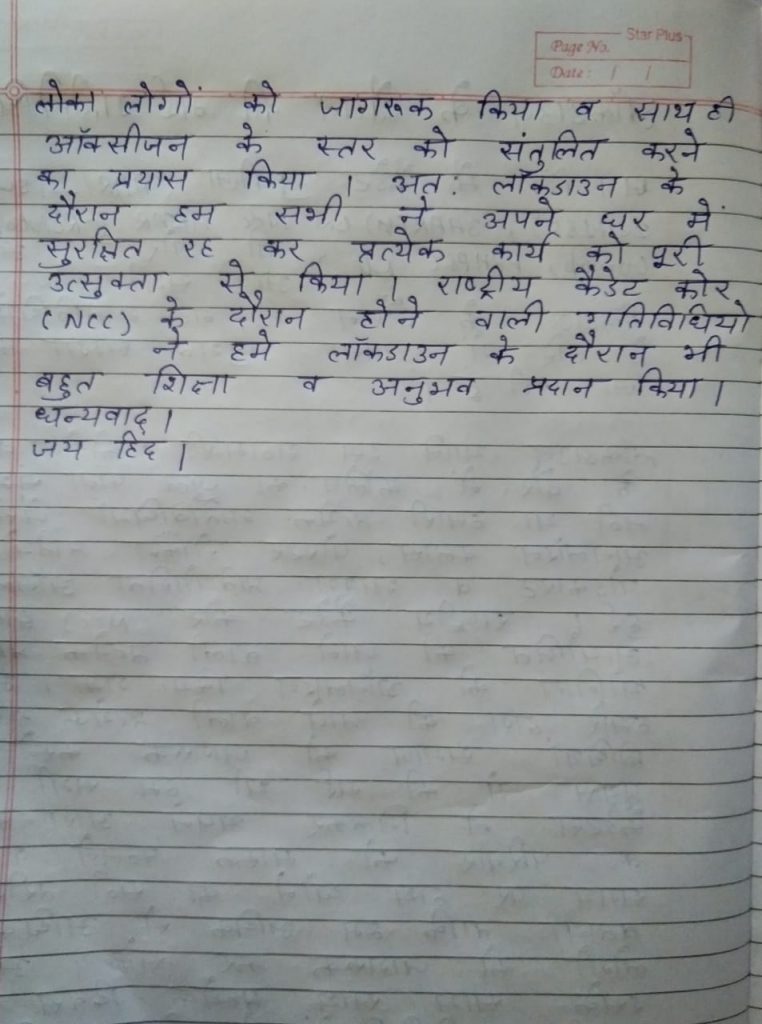 Star Plus
Page No.
Date: / /
लोका लोगों को जागरूक किया व साथ ही
ऑक्सीजन के स्तर को संतुलित करने
का प्रयास किया । अतः लॉकडाउन के
दौरान हम सभी ने अपने घर में
सुरक्षित रह कर प्रत्येक कार्य को पूरी
उत्सुक्ता से किया । राष्ट्रीय कैडेट कोर
(NCC) के दौरान होने वाली गतिविधियो
ने हमे लॉकडाउन के दौरान भी
बहुत शिक्षा व अनुभव प्रदान किया ।
धन्यवाद ।
जय हिद ।